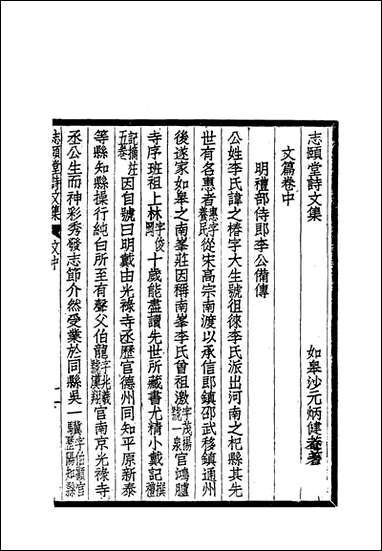 志頤堂詩文集
如皋沙元炳健菴著
文篇卷中
明禮部侍郎李公備傳
公姓李氏諱之椿字大生號徂徠李氏派出河南之杞縣其先
世有名惠者惠字養民從宋高宗南渡以承信郎鎮邵武移鎮通州
後遂家如皋之南峯莊因稱南峯李氏曾祖激字茂揚號一泉官鴻臚
寺序班祖上林字俊岡十歲能盡讀先世所藏書尤精小戴記撰禮
記摘莊五卷因自號曰明戴由光祿寺丞歷官德州同知平原新泰
等縣知縣操行純白所至有聲父伯龍字兆羲號漢翔官南京光祿寺
丞公生而神彩秀發志節介然受業於同縣吳一驥字伯顯官歷陽知縣
志頤堂詩文集
文中
一